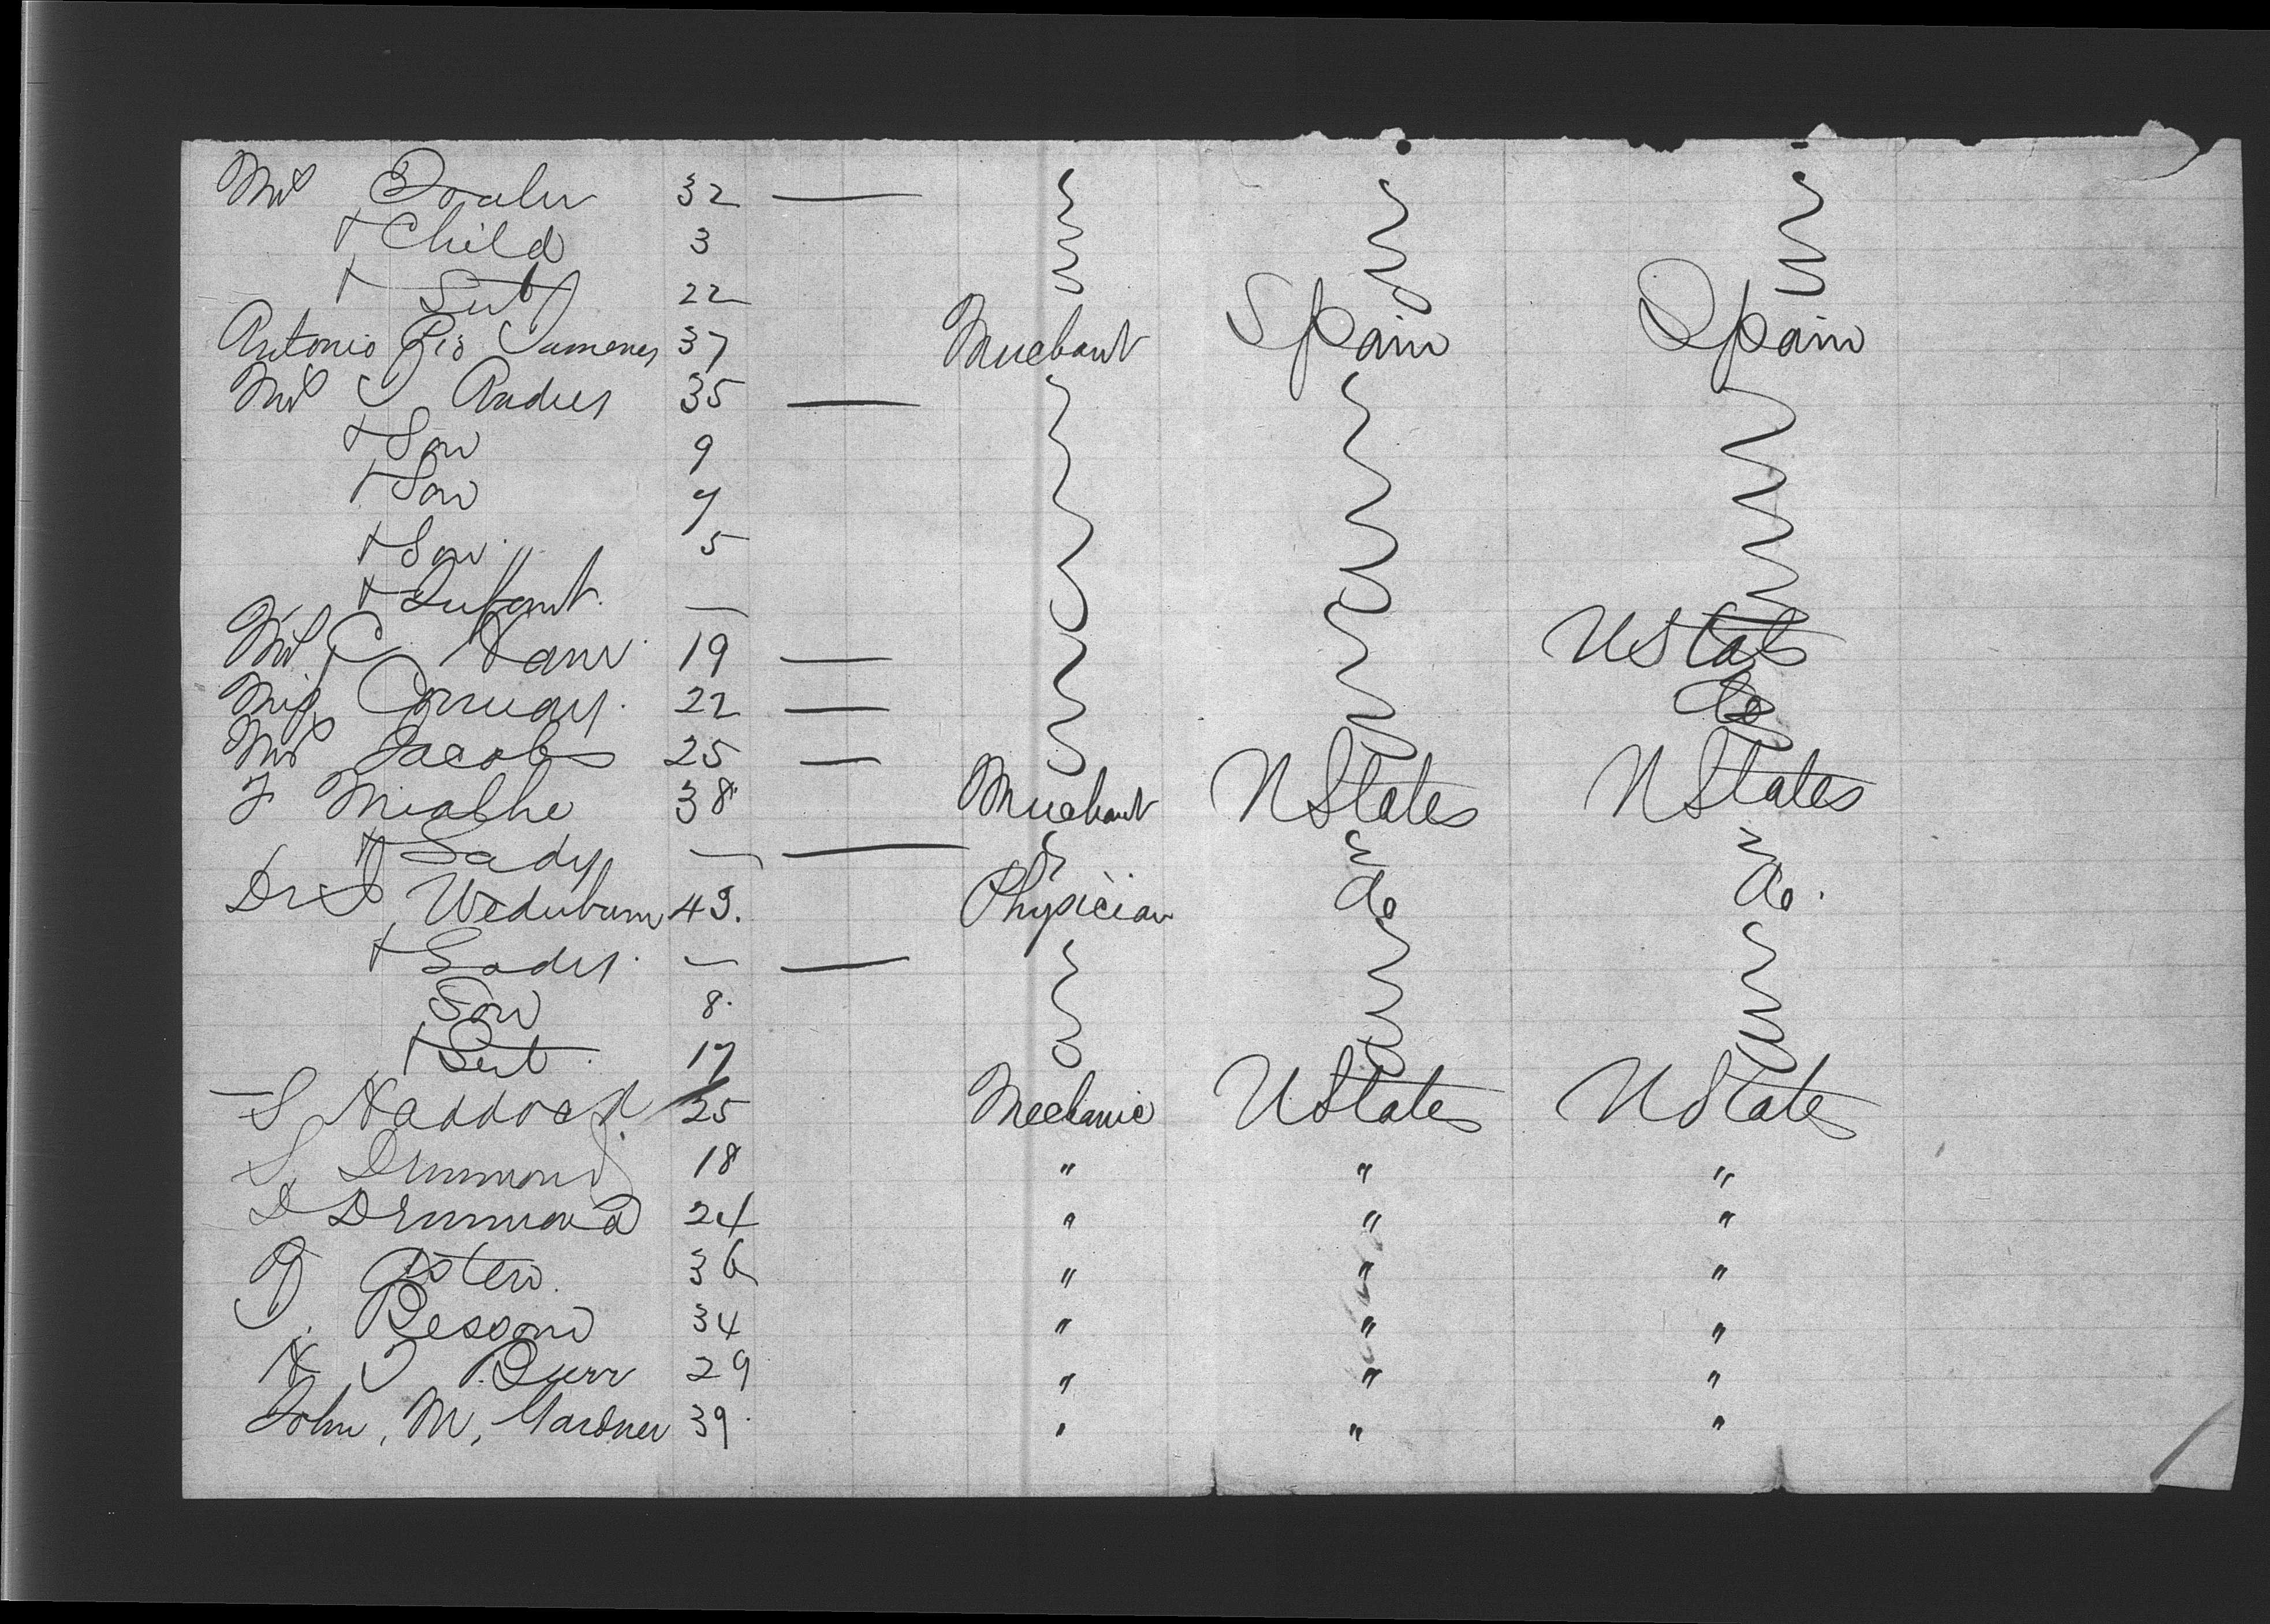 Mrs 32 —
+ Child 3
+ Sert 22
Antonio Rio Jumenes 37 Merchant Spain Spain
Mrs Andres 35 —
+ Son 9
+ Son 7
+ Son 5
+ Infant. —
Mrs C 19 — U States
Miss Conway. 22 — do
Mrs Jacobs 25 —
F Mialhe 38 Merchant U States U States
+ Lady — —
Dr Wederburn 43. Physician do do.
+ Lady. — —
Son 8.
+ Sert. 17
S Haddock. 25 Mechanic U States U States
S Drummond 18 " " "
D Drummond 24 " " "
J Osten. 36 " " "
J. Besson 34 " " "
H J Burr 29 " " "
John, M, Gardner 39. " " "